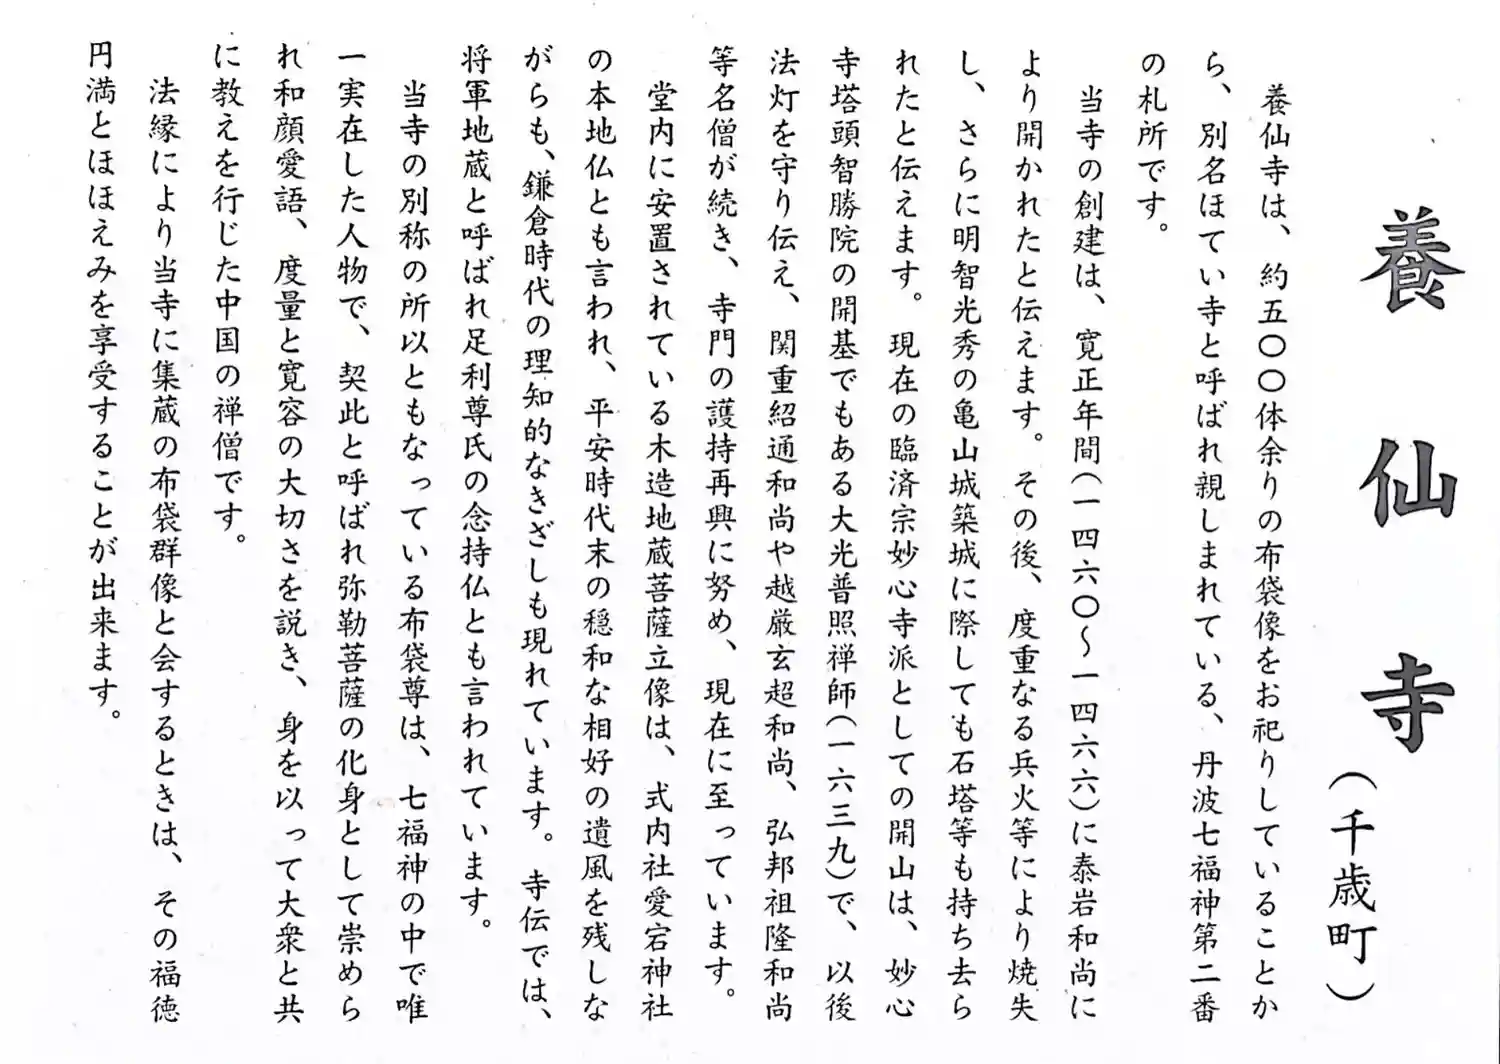 養仙寺
(千歳町)
養仙寺は、約五〇〇体余りの布袋像をお祀りしていることか
ら、別名ほてい寺と呼ばれ親しまれている、丹波七福神第二番
の札所です。
当寺の創建は、寛正年間(一四六〇〜一四六六)に泰岩和尚に
より開かれたと伝えます。その後、度重なる兵火等により焼失
し、さらに明智光秀の亀山城築城に際しても石塔等も持ち去ら
れたと伝えます。現在の臨済宗妙心寺派としての開山は、妙心
寺塔頭智勝院の開基でもある大光普照禅師(一六三九)で、以後
法灯を守り伝え、関重紹通和尚や越厳玄超和尚、弘邦祖隆和尚
等名僧が続き、寺門の護持再興に努め、現在に至っています。
堂内に安置されている木造地蔵菩薩立像は、式内社愛宕神社
の本地仏とも言われ、平安時代末の穏和な相好の遺風を残しな
がらも、鎌倉時代の理知的なきざしも現れています。寺伝では、
将軍地蔵と呼ばれ足利尊氏の念持仏とも言われています。
当寺の別称の所以ともなっている布袋尊は、七福神の中で唯
一実在した人物で、契此と呼ばれ弥勒菩薩の化身として崇めら
れ和顔愛語、度量と寛容の大切さを説き、身を以って大衆と共
に教えを行じた中国の禅僧です。
法縁により当寺に集蔵の布袋群像と会するときは、その福徳
円満とほほえみを享受することが出来ます。